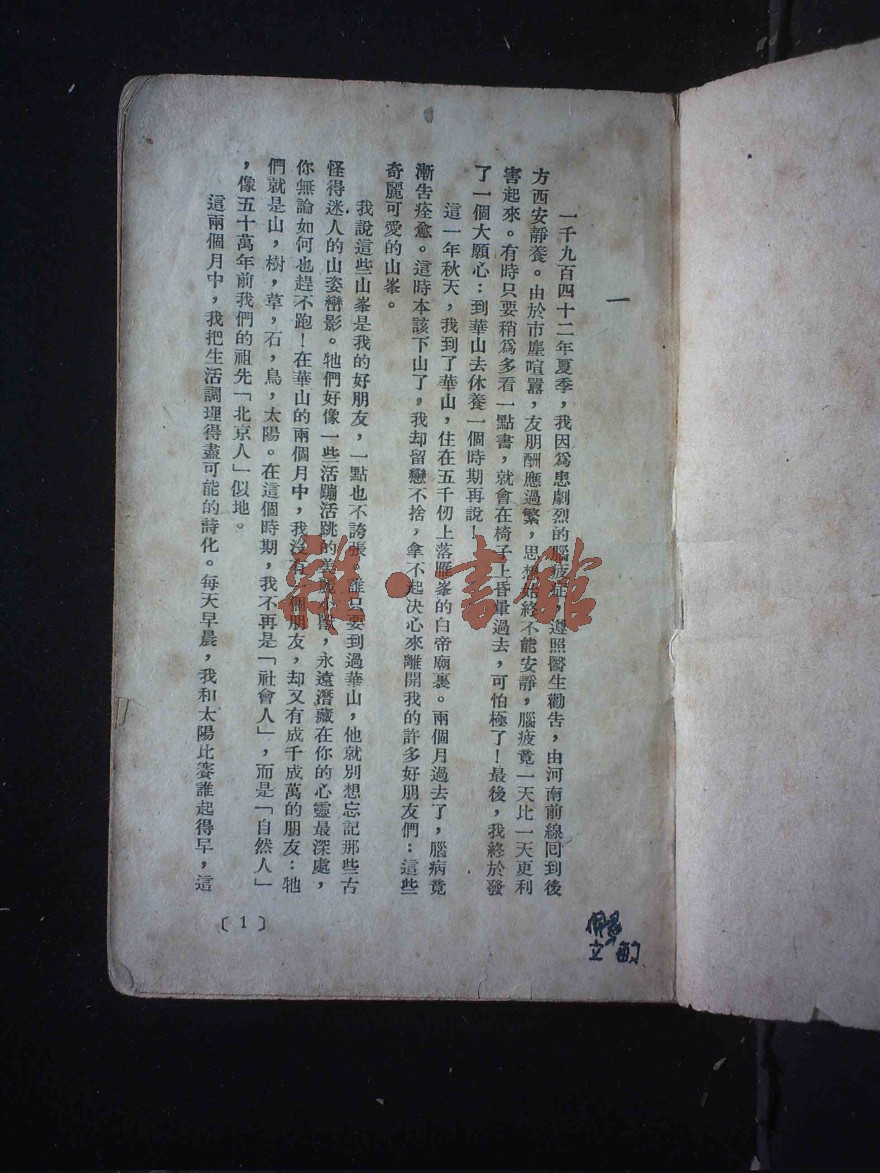 一
一千九百四十二年夏季，我因爲患劇烈的腦疲症，遵照醫生勸告，由河南前線回到後
方西安靜養。由於市塵喧囂，友朋酬應過繁，思想始終不能安靜，腦疲竟一天比一天更利
害起來。有時只要稍爲多看一點書，就會在椅子上昏暈過去，可怕極了！最後，我終於發
了一個大願心：到華山去休養一個時期再說！
這一年秋天，我到了華山，住在五千仞上落雁峯的白帝廟裏。兩個月過去了，腦病竟
漸告痊愈。這時本該下山了，我却留戀不捨，拿不起决心來離開我的許多好朋友們：這些
奇麗可愛的山峯。
我說這些山峯是我的好朋友，一點也不誇張，誰只要到過華山，他就別想忘記那些古
怪得迷人的山姿巒影。牠們好像一些活蹦活跳的小獸，永遠潛藏在你的心靈最深處，
你無論如何也趕不跑！在華山的兩個月中，我沒有一個朋友，却又有成千成萬的朋友：牠
們就是山，樹，草，石，鳥，太陽。在這個時期，我不再是「社會人」，而是「自然人」
，像五十萬年前我們的祖先「北京人」似地。
這兩個月中，我把生活調理得盡可能的詩化。每天早晨，我和太陽比賽誰起得早，這
〔1〕
雜·書館